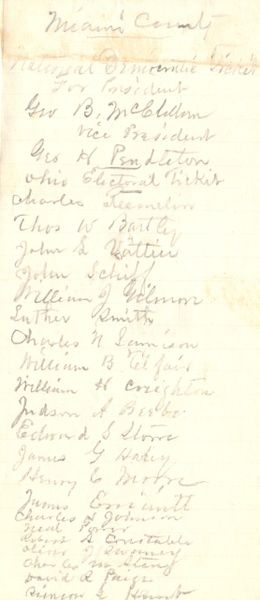 Miami County
National Democratic Ticket
For President
Geo B. McClellan
Vice President
Geo H Pendleton
Ohio Electoral Ticket
Charles Reemelin
Thos W Bartley
John L Vattier
John Schiff
William J Gilmore
Luther Smith
Charles N Lamison
William B Telfair
William H Creighton
Judson A Beebe
Edward S Stowe
James G Haley
Henry C Moore
James Emmitt
Charles H Johnson
Neal Power
Robert S Constable
Oliver J Swaney
Charles M
David R Paige
Hunt